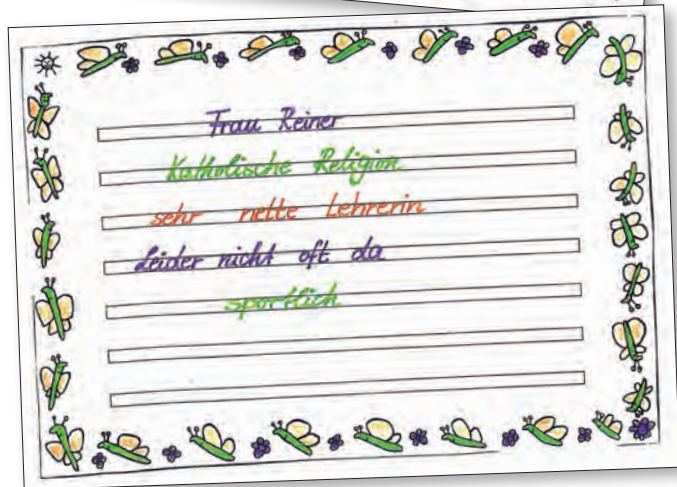 Frau Reiner
Katholische Religion
sehr nette Lehrerin
Leider nicht oft da
sportlich